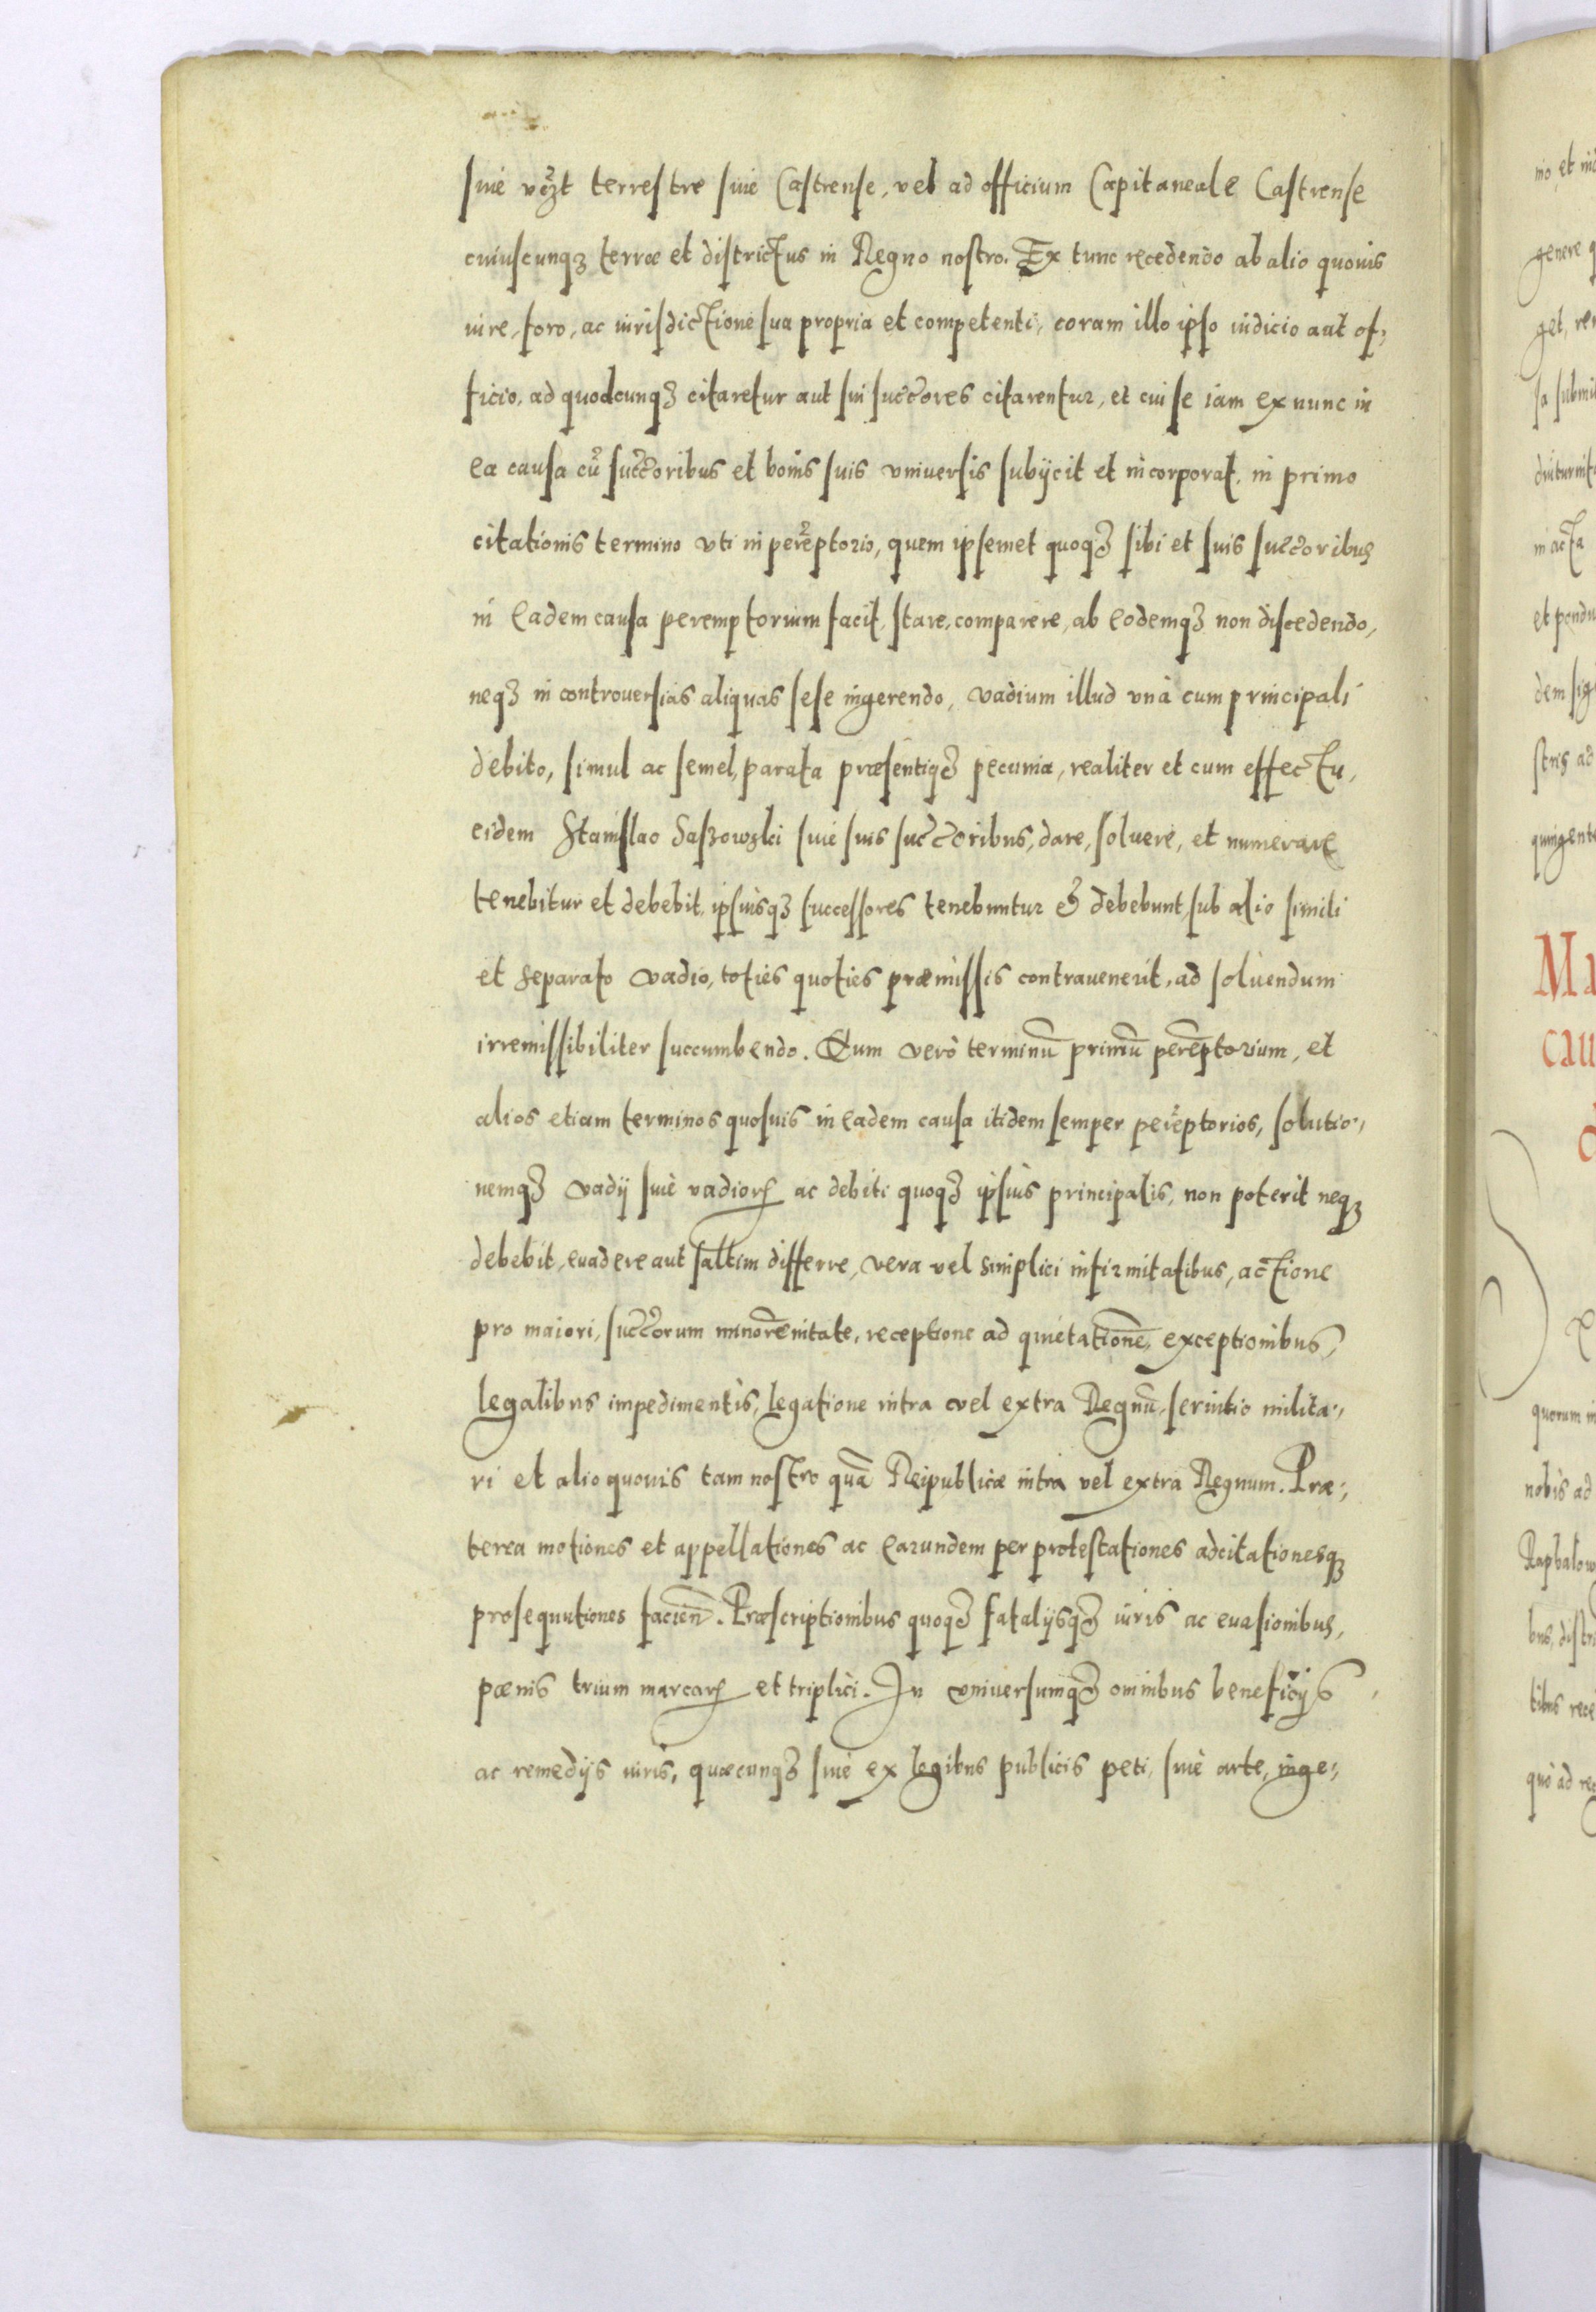 siue vꝫt terrestre siue Castrense, vel ad officium Capitaneale Castrense
cuiuscunqꝫ terræ et districtus in Regno nostro. Ex tunc recedendo ab alio quouis
iure, foro, ac iurisdictione sua propria et competenti, coram illo ipso iudicio aut of,
ficio, ad quodcunqꝫ citaretur aut sui succ̃ores citarentur, et cui se iam ex nunc in
ea causa cũ succ̃oribus et bonis suis vniuersis subijcit et incorporat, in primo
citationis termino vti in perẽptorio, quem ipsemet quoqꝫ sibi et suis succ̃oribus
in eadem causa peremptorium facit, stare, comparere, ab eodemqꝫ non discedendo,
neqꝫ in controuersias aliquas sese ingerendo, vadium illud vnà cum principali
debito, simul ac semel, parata præsentiqꝫ pecunia, realiter et cum effectu,
eidem Stanislao Saszowski siue suis succ̃oribus, dare, soluere, et numerare
tenebitur et debebit, ipsiusqꝫ successores tenebuntur & debebunt, sub alio simili
et separato vadio, toties quoties præmissis contrauenerit, ad soluendum
irremissibiliter succumbendo. Quum verò terminũ primũ perẽptorium, et
alios etiam terminos quosuis in eadem causa itidem semper perẽptorios, solutio,
nemqꝫ vadij siue vadioꝝ ac debiti quoqꝫ ipsius principalis, non poterit neqꝫ
debebit, euadere aut saltim differre, vera vel simplici infirmitatibus, actione
pro maiori, succ̃orum minorẽnitate, receptione ad quietationẽ, exceptionibus,
legalibus impedimentis, legatione intra vel extra Regnũ, seruitio milita,
ri et alio quouis tam nostro quã Reipublicæ intra vel extra Regnum. Præ,
terea motiones et appellationes ac earundem per protestationes adcitationesqꝫ
prosequutiones facien̄. Præscriptionibus quoqꝫ fatalijsqꝫ iuris ac euasionibus,
pœnis trium marcaꝝ et triplici. In vniuersumqꝫ omnibus beneficijs
ac remedijs iuris, quæcunqꝫ siue ex legibus publicis peti, siue arte, inge,
mo, et
genere
get,
sa
in acta
et
dem
stris ad
Ma
cau
quorum
nobis ad
quò ad